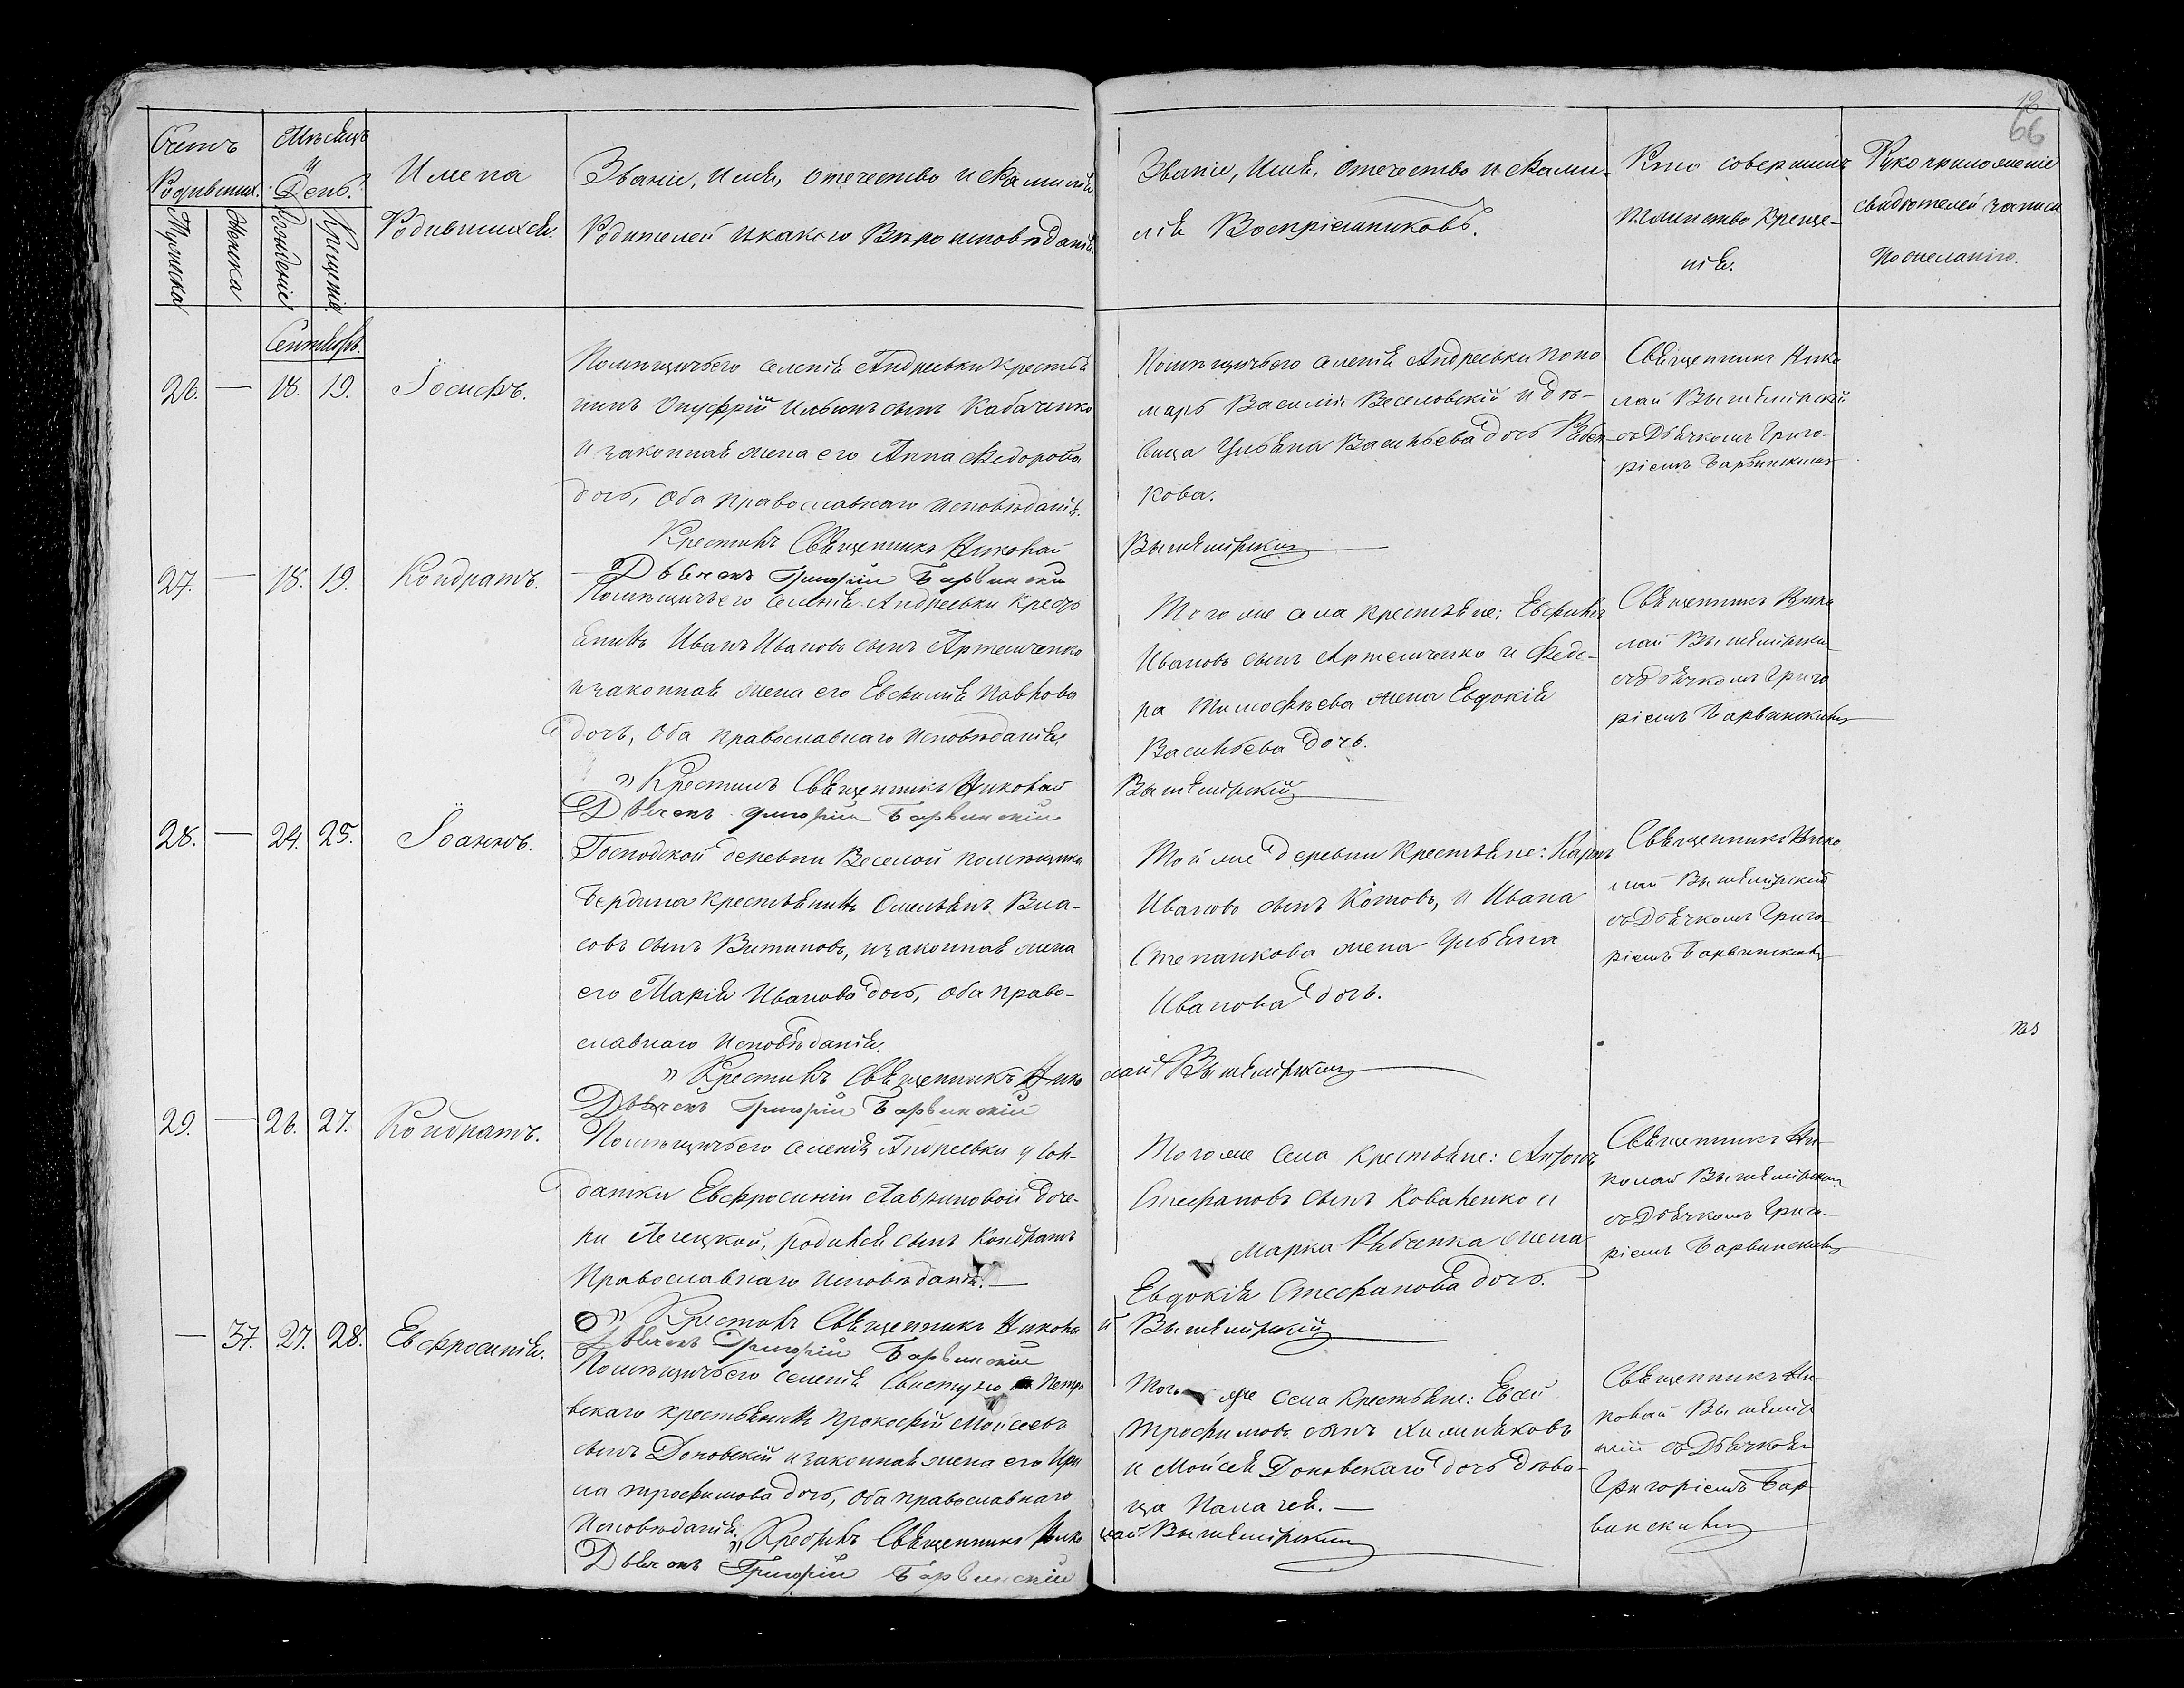 12
66
Счетъ
Родивших.
Мѣсяцъ
и
День.
Мужеска
Женска
Рожденіе
Крещеніе
Имена
Родившихся.
Званіе, Имя, Отечество и Фамилія
Родителей и какого Вѣроисповѣданія.
Званіе, Имя, Отечество и Фами-
лія Воспріемниковъ.
Кто совершилъ
Таинство Креще-
нія.
Рукоприложеніе
свидѣтелей записи
По желанію.
Сентябрь.
26. — 18. 19. Іосифъ.
Помѣщичьего селенія Андреевки крестья
нинъ Онуфрій Ильинъ сынъ Кабаченко
и законная жена его Анна Федорова
дочь, Оба Православнаго Исповѣданія.
Крестилъ Священникъ Николай
Дьячокъ Григорій Барвинскій
Помѣщичьего селенія Андреевки поно
марь Василій Веселовскій и дѣ-
вица Ульяна Васильева дочь
кова.
Вышемірскій
Священникъ Нико
лай Вышемірскій
съ Дьячкомъ Григо-
ріемъ Барвинскимъ
27. — 18. 19. Кондратъ.
Помѣщичьего селенія Андреевки крестъ
янинъ Иванъ Ивановъ сынъ Артемченко
и законная жена его Евфимія Павлова
дочь, Оба православнаго Исповѣданія.
Крестилъ Священникъ Николай
Дьячокъ Григорій Барвинскій
Того же села крестьяне:
Ивановъ сынъ Артемченко и Федо-
ра Тимофѣева жена Евдокія
Васильева дочь.
Вышемірскій
Священникъ Нико
лай Вышемірскій
съ Дьячкомъ Григо
ріемъ Барвинскимъ
28. — 24. 25. Іоаннъ.
Господской деревни Веселой помѣщика
Бердина крестьянинъ Омельянъ Вла-
совъ сынъ Витиновъ, и законная жена
его Марія Иванова дочь, Оба право-
славнаго Исповѣданія.
Крестилъ Священникъ Нико
Дьячокъ Григорій Барвинскій
Той же деревни крестьяне: Карпъ
Ивановъ сынъ Котовъ, и Ивана
Степанкова жена Ульяна
Иванова дочь.
лай Вышемірскій
Священникъ Нико
лай Вышемірскій
съ Дьячкомъ Григо-
ріемъ Барвинскимъ
29. — 26. 27. Кондратъ.
Помѣщичьего селенія Андреевки у сол-
датки Евфросиніи Лавриновой доче-
ри , родился сынъ Кондратъ
Православнаго Исповѣданія. —
Крестилъ Священникъ Никола
Дьячокъ Григорій Барвинскій
Того же села крестьяне: Антонъ
Стефановъ сынъ Коваленко и
Марка Рябченка жена
Евдокія Стефанова дочь.
й Вышемірскій
Священникъ Ни-
колай Вышемірскій
съ Дьячкомъ Григо-
ріемъ Барвинскимъ
— 37. 27. 28. Евфросинія.
Помѣщичьего селенія Петро
вскаго крестьянинъ Прокофій Мойсеевъ
сынъ Доновскій и законная жена его Ири
на Трофимова дочь, Оба православнаго
Исповѣданія. Крестилъ Священникъ Нико
Дьячокъ Григорій Барвинскій
Того же села крестьяне: Евсей
Трофимовъ сынъ Химиняковъ
и Мойсея Доновскаго дочь дѣви-
ца Палагея. —
лай Вышемірскій
Священникъ Ни-
колай Вышемір
скій съ Дьячкомъ
Григоріемъ Бар-
винскимъ